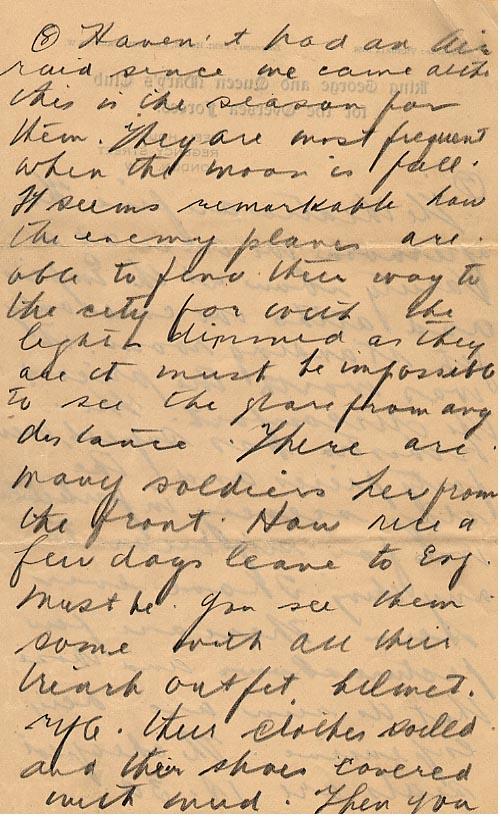 ⑧ Haven't had an Air
raid since we came altho
this is the season for
them. They are most frequent
when the moon is full.
It seems remarkable how
the enemy planes are
able to find their way to
the city for with the
lights dimmed as they
are it must be impossible
to see the glare from any
distance. There are
many soldiers her from
the front. How nice a
few days leave to Eng.
must be. You see them
some with all their
trench outfit helmet.
rifle. their clothes soiled
and their shoes covered
with mud. Then you